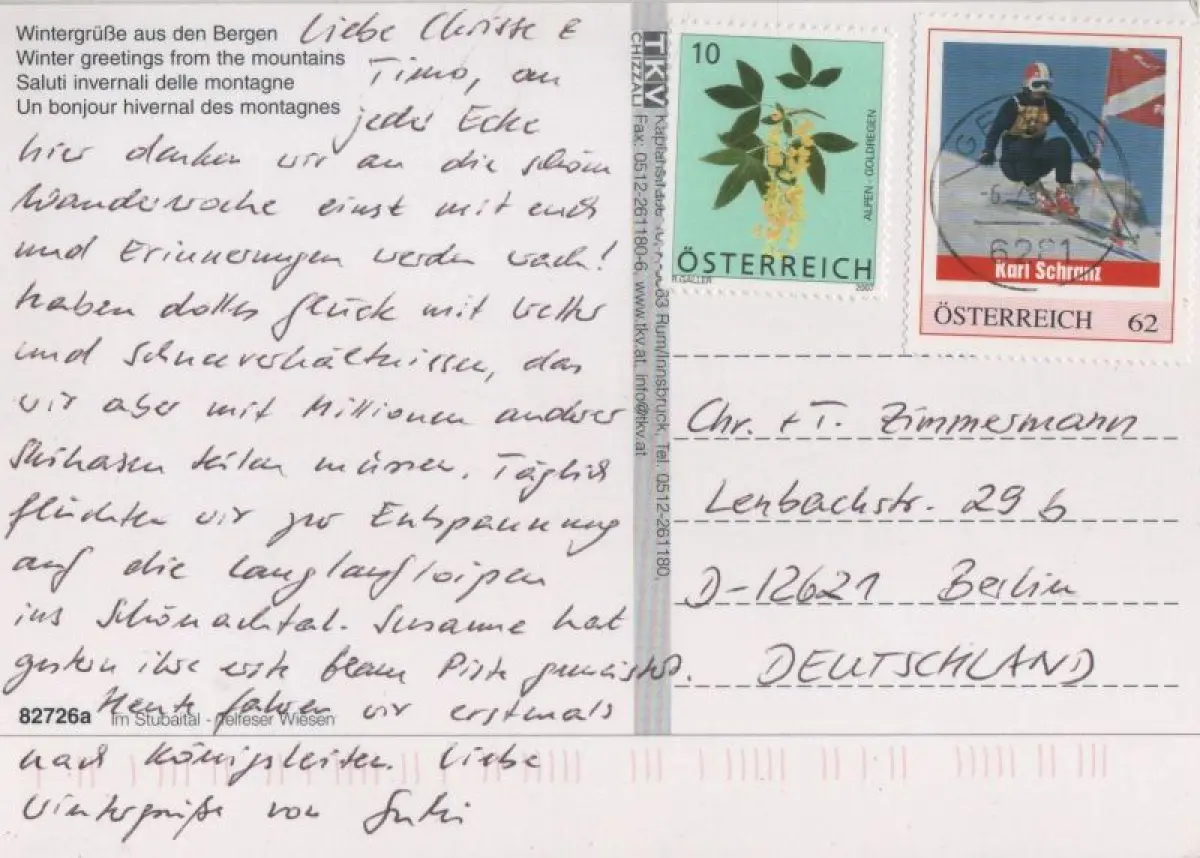 Wintergrüße aus den Bergen
Winter greetings from the mountains
Saluti invernali delle montagne
Un bonjour hivernal des montagnes
Liebe Chrisse &
Timo, an
jeder Ecke
hier denken wir an die schöne
Wanderwoche einst mit euch
und Erinnerungen werden wach!
Haben dolles Glück mit Wetter
und Schneeverhältnissen, das
wir aber mit Millionen anderer
Skihasen teilen müssen. Täglich
flüchten wir zur Entspannung
auf die Langlaufloipen
ins Schönachtal. Susanne hat
gestern ihre erste blaue Piste gemeistert.
Heute fahren wir erstmals
nach Königsleiten. Liebe
Wintergrüße von
82726a Im Stubaital - Telfeser Wiesen
TKV
CHIZZALI Fax: 0512-261180-6, www.tkv.at, info@tkv.at
63 Rum/Innsbruck, Tel. 0512-261180,
10
ALPEN-GOLDREGEN
ÖSTERREICH
R.GALLER
2007
6281
Karl Schranz
ÖSTERREICH 62
Chr. + T. Zimmermann
Lenbachstr. 29 b
D-12621 Berlin
DEUTSCHLAND